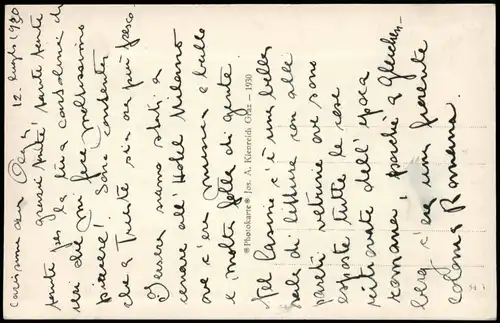 12. luglio 1930
Carissima Olga
grazie tante! tante tante
tante per la tua cartolina di
ieri che mi fece moltissimo
piacere! Sono contenta
che a Trieste sia ora più fresco.
Ieri siamo stati a
cenare all'Hotel Milano
ove c'era musica e ballo
e molta folla di gente
Nel Casino c'è una bella
sala di lettura con alle
pareti vetrine ove sono
esposte tutte le cose
ritrovate dell'epoca
romana, poichè a Gleichen-
berg c'era una fiorente
colonia Romana.
Photokarte Jos. A. Kienreich Graz – 1930